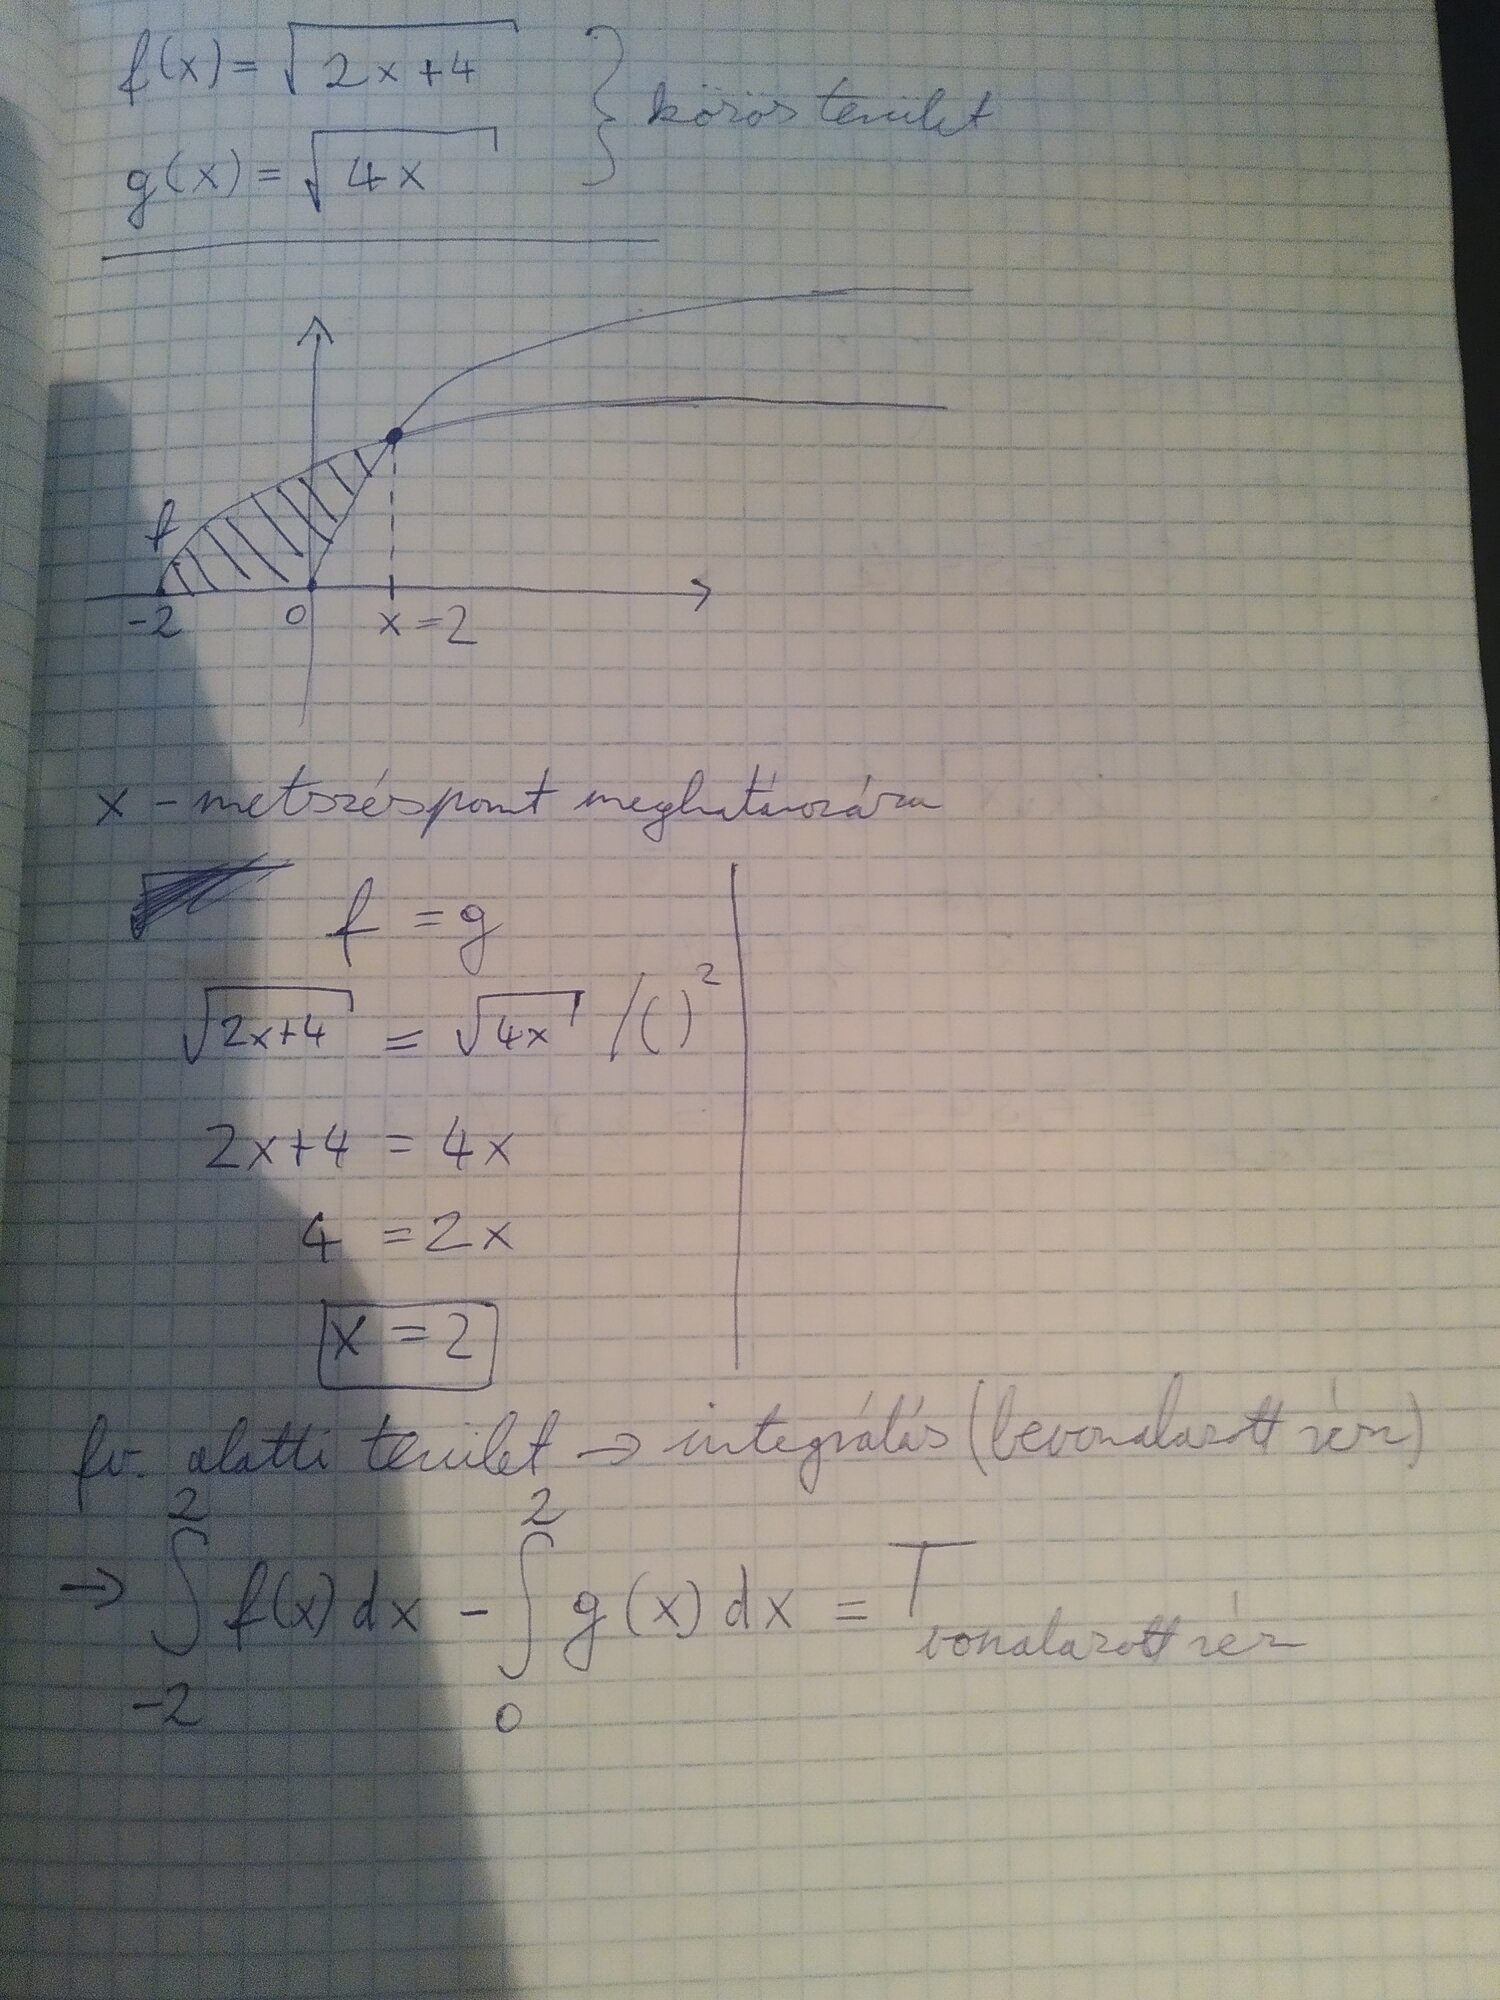 f(x) = √2x+4
g(x) = √4x
} közös terület
f
-2 0 x=2
x - metszéspont meghatározása
f = g
√2x+4 = √4x /( )²
2x+4 = 4x
4 = 2x
x = 2
fv. alatti terület → integrálás (bevonalazott rész)
→ ∫₋₂² f(x) dx - ∫₀² g(x) dx = T vonalazott rész